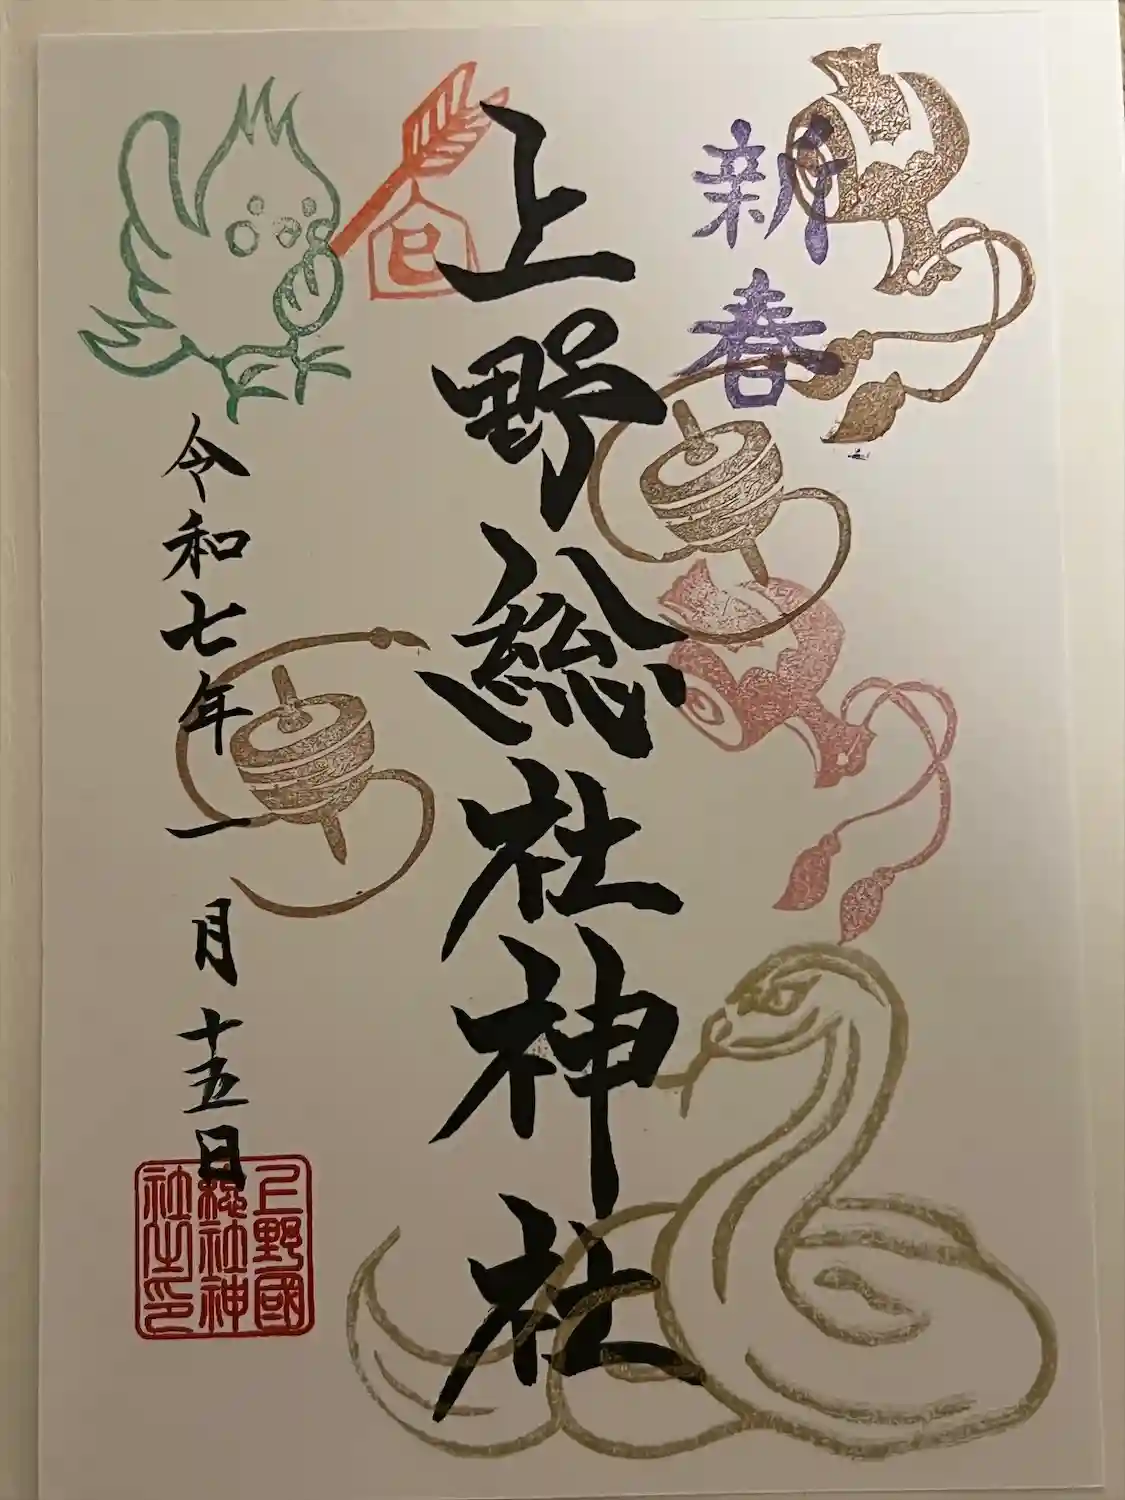 新春
上野総社神社
巳
令和七年一月十五日
上野國
総社神
社之印